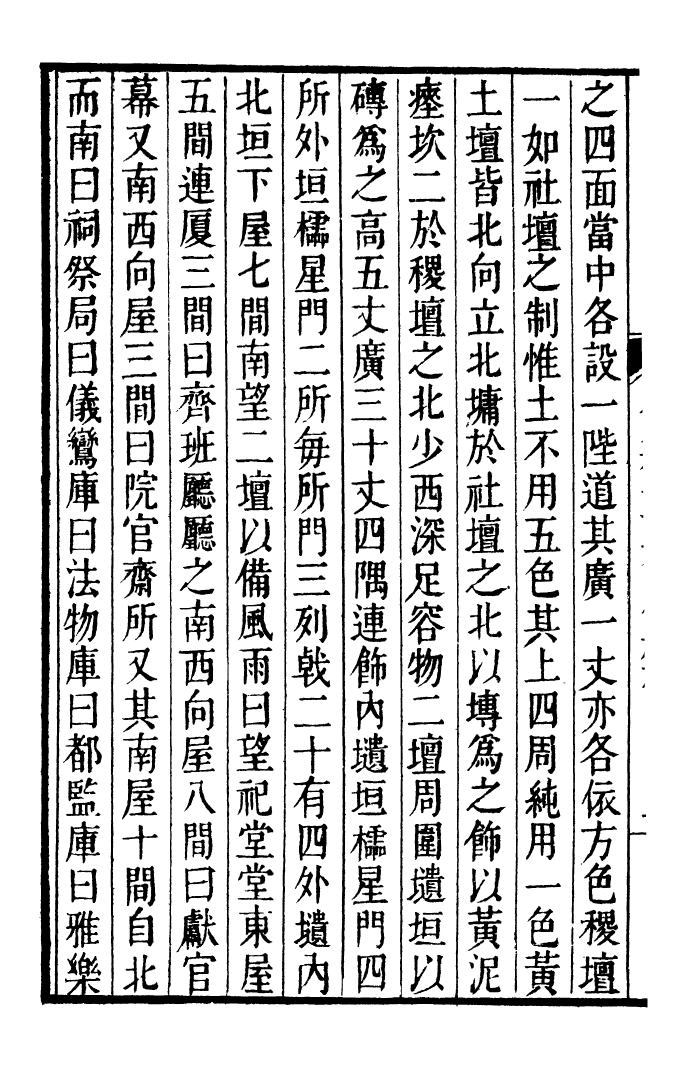 之四面當中各設一陛道其廣一丈亦各依方色稷壇
一如社壇之制惟土不用五色其上四周純用一色黃
土壇皆北向立北墉於社壇之北以塼爲之飾以黃泥
瘞坎二於稷壇之北少西深足容物二壇周圍壝垣以
磚爲之高五丈廣三十丈四隅連飾內壝垣櫺星門四
所外垣櫺星門二所每所門三列戟二十有四外壝內
北垣下屋七間南望二壇以備風雨曰望祀堂堂東屋
五間連厦三間曰齊班廳廳之南西向屋八間曰獻官
幕又南西向屋三間曰院官齋所又其南屋十間自北
而南曰祠祭局曰儀鸞庫曰法物庫曰都監庫曰雅樂